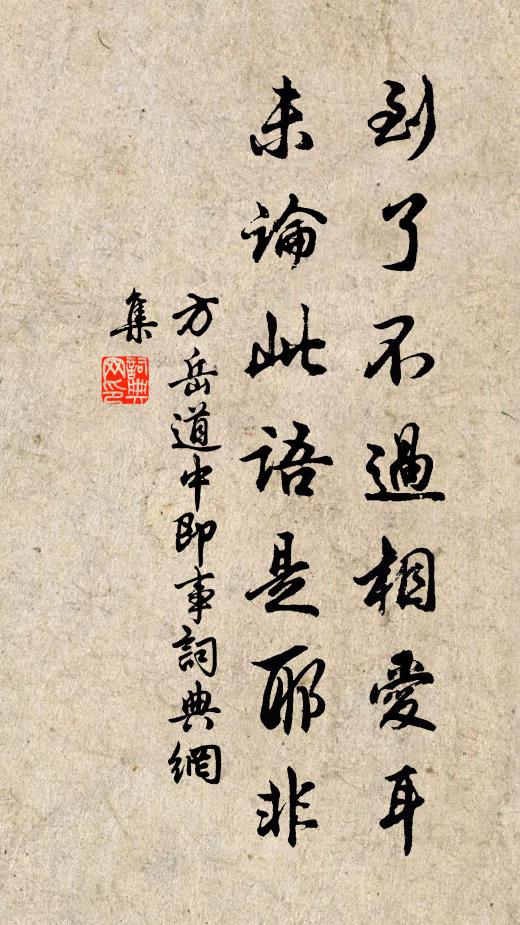 到了不過相愛耳
未論此語是耶非
方岳道中即事詞典網
集
詞典
网印